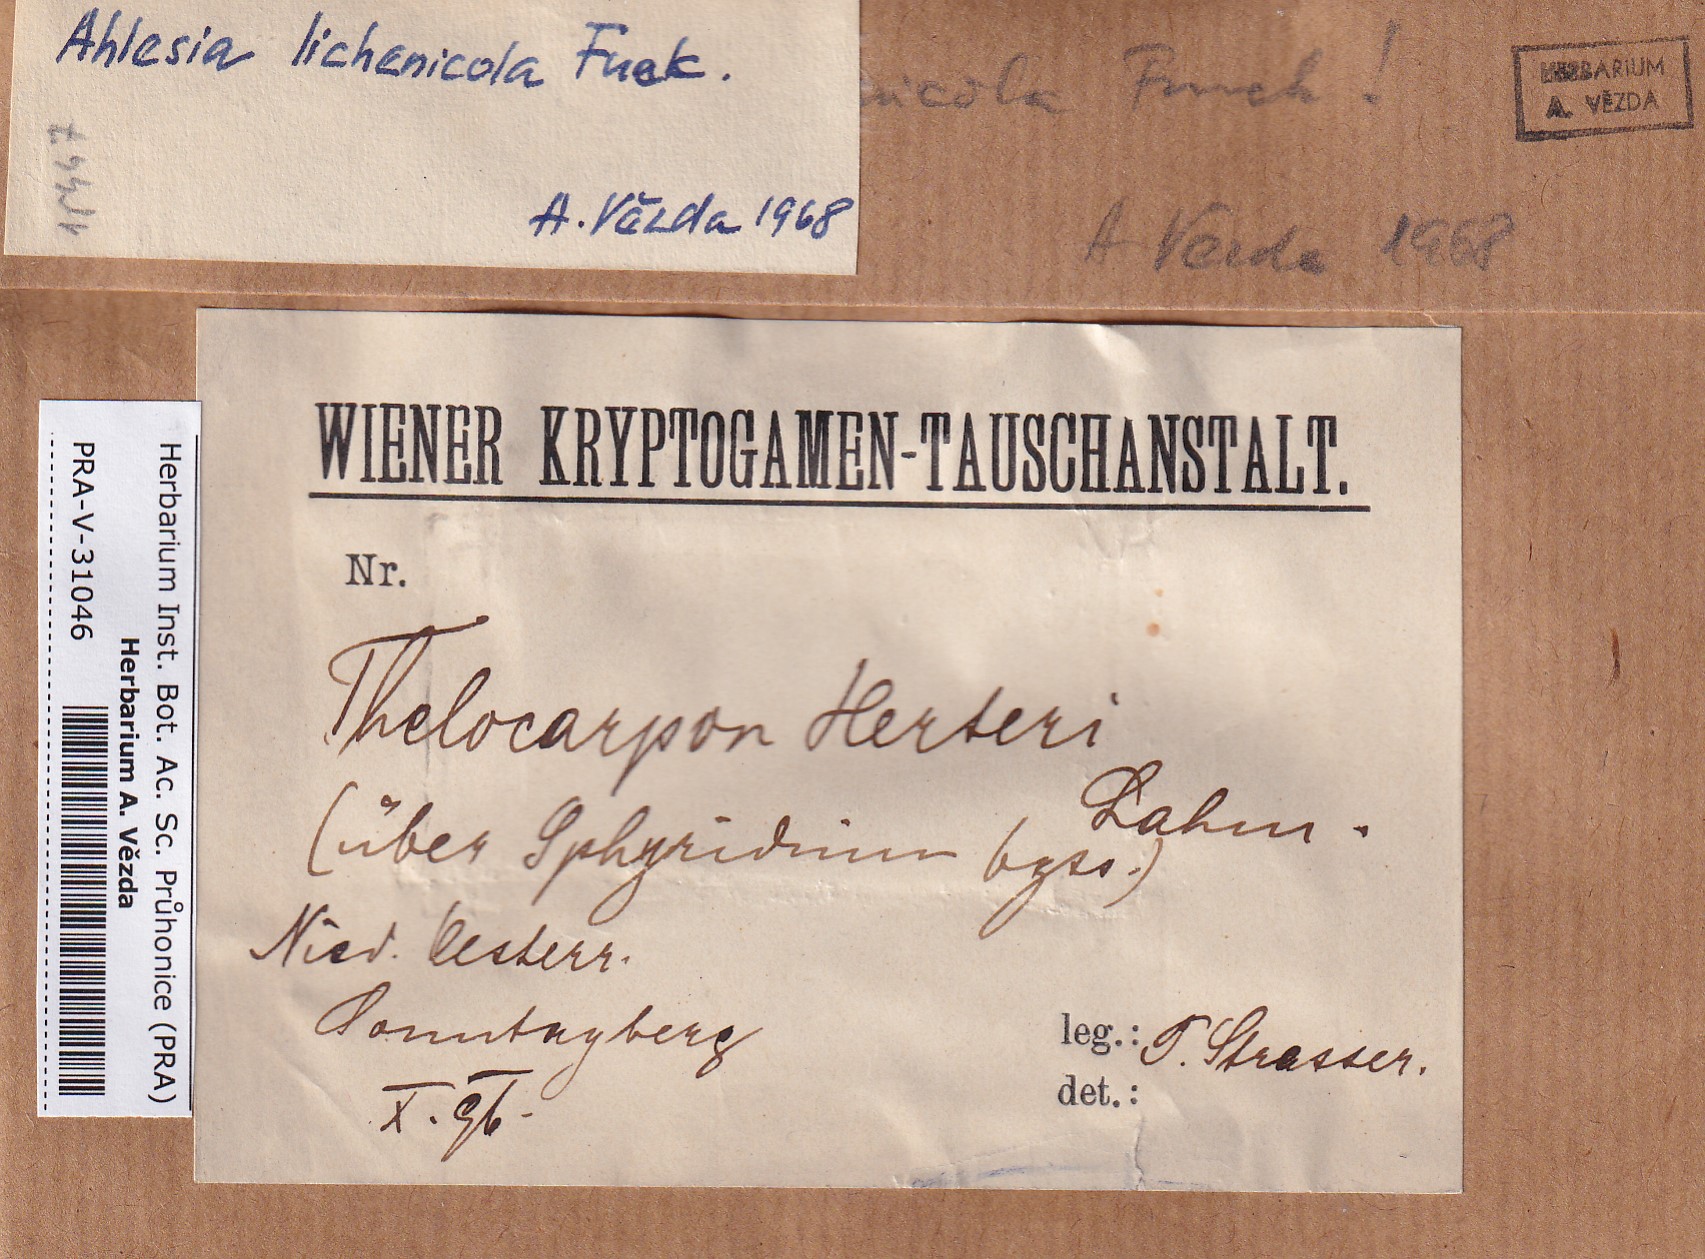 Ahlesia lichenicola Fuck.
A. Vězda 1968
nicola Fuck !
A Vězda 1968
HERBARIUM
A. VĚZDA
Herbarium Inst. Bot. Ac. Sc. Průhonice (PRA)
Herbarium A. Vězda
PRA-V-31046
WIENER KRYPTOGAMEN-TAUSCHANSTALT.
Nr.
Thelocarpon Herteri
Lahm.
(über Sphyridium byss.)
Nied. Oesterr.
Sonntagberg
X. 96.
leg.: P. Strasser.
det.: